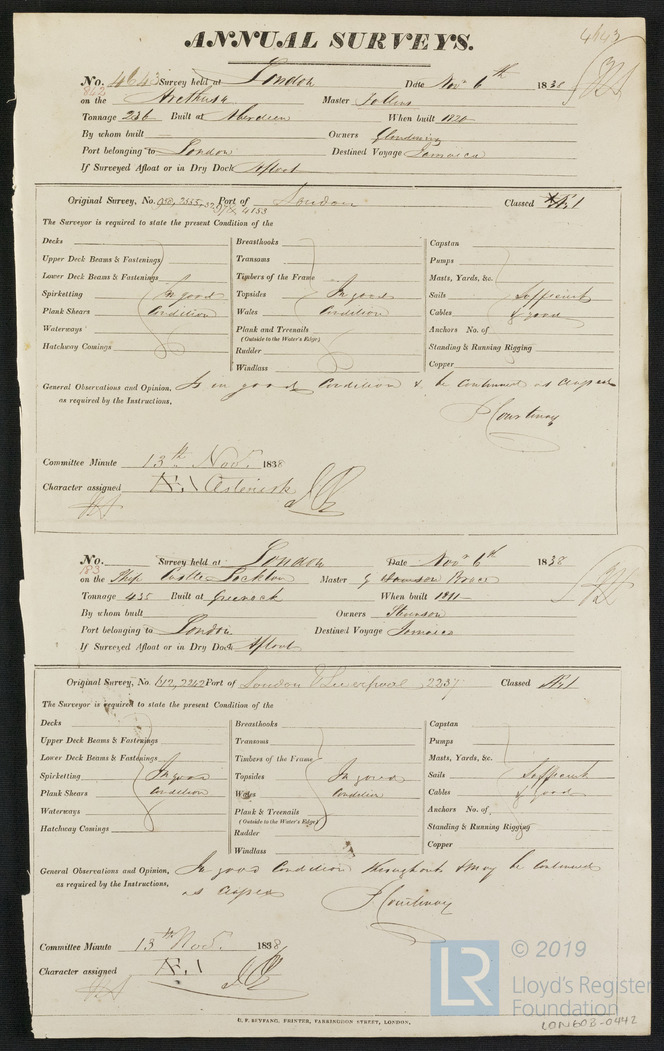 4643
ANNUAL SURVEYS.
No. 4643 Survey held at London Date Nov 6th 1838
on the Arethusa Master
Tonnage 236 Built at Aberdeen When built
By whom built — Owners
Port belonging to London Destined Voyage Jamaica
If Surveyed Afloat or in Dry Dock Afloat
Original Survey, No. Port of London Classed Æ1
The Surveyor is required to state the present Condition of the
Decks Breasthooks Capstan
Upper Deck Beams & Fastenings Transoms Pumps
Lower Deck Beams & Fastenings Timbers of the Frame Masts, Yards, &c.
Spirketting In good Topsides In good Sails Sufficient
Plank Shears Condition Wales Condition Cables & good
Waterways Plank and Treenails Anchors No. of
(Outside to the Water's Edge)
Hatchway Comings Rudder Standing & Running Rigging
Windlass Copper
General Observations and Opinion, Is in good Condition & be Continued as classed
as required by the Instructions, Courtenay
Committee Minute 13th Nov. 1838
Character assigned Æ.1 Asterisk
No. Survey held at London Date Nov 6th 1838
183
on the Ship Castle Master
Tonnage 455 Built at Greenock When built 1811
By whom built Owners Stevenson
Port belonging to London Destined Voyage Jamaica
If Surveyed Afloat or in Dry Dock Afloat
Original Survey, No. 612, 2242 Port of London & Liverpool 2237 Classed Æ1
The Surveyor is required to state the present Condition of the
Decks Breasthooks Capstan
Upper Deck Beams & Fastenings Transoms Pumps
Lower Deck Beams & Fastenings Timbers of the Frame Masts, Yards, &c.
Spirketting In good Topsides In good Sails Sufficient
Plank Shears Condition Wales Condition Cables & good
Waterways Plank & Treenails Anchors No. of
(Outside to the Water's Edge)
Hatchway Comings Rudder Standing & Running Rigging
Windlass Copper
General Observations and Opinion, In good Condition throughout & may be Continued
as required by the Instructions, as classed Courtenay
Committee Minute 13th Nov. 1838
Character assigned Æ.1
LR © 2019
Lloyd's Register
Foundation
LON602-0442
C. F. SEYFANG, PRINTER, FARRINGDON STREET, LONDON.